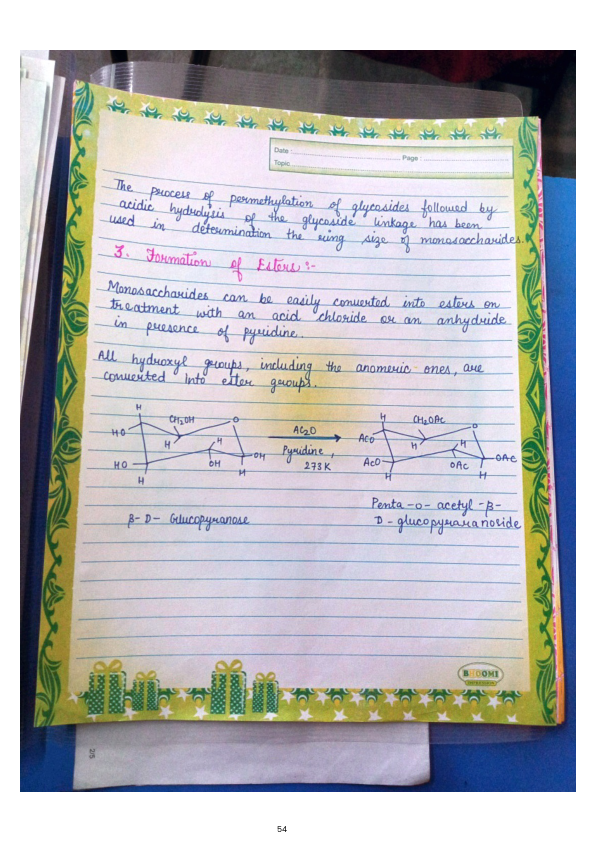 Date : Page :
Topic
The process of permethylation of glycosides followed by
acidic hydrolysis of the glycoside linkage has been
used in determination the ring size of monosaccharides.
3. Formation of Esters :-
Monosaccharides can be easily converted into esters on
treatment with an acid chloride or an anhydride
in presence of pyridine.
All hydroxyl groups, including the anomeric ones, are
converted into ester groups.
H
CH2OH O
HO H
H
HO OH OH
H H
Ac2O
Pyridine,
273K
H
CH2OAc O
AcO H
H
AcO OAc OAc
H H
β- D- Glucopyranose
Penta -o- acetyl -β-
D - glucopyraranoside
BHOOMI
2/5
54